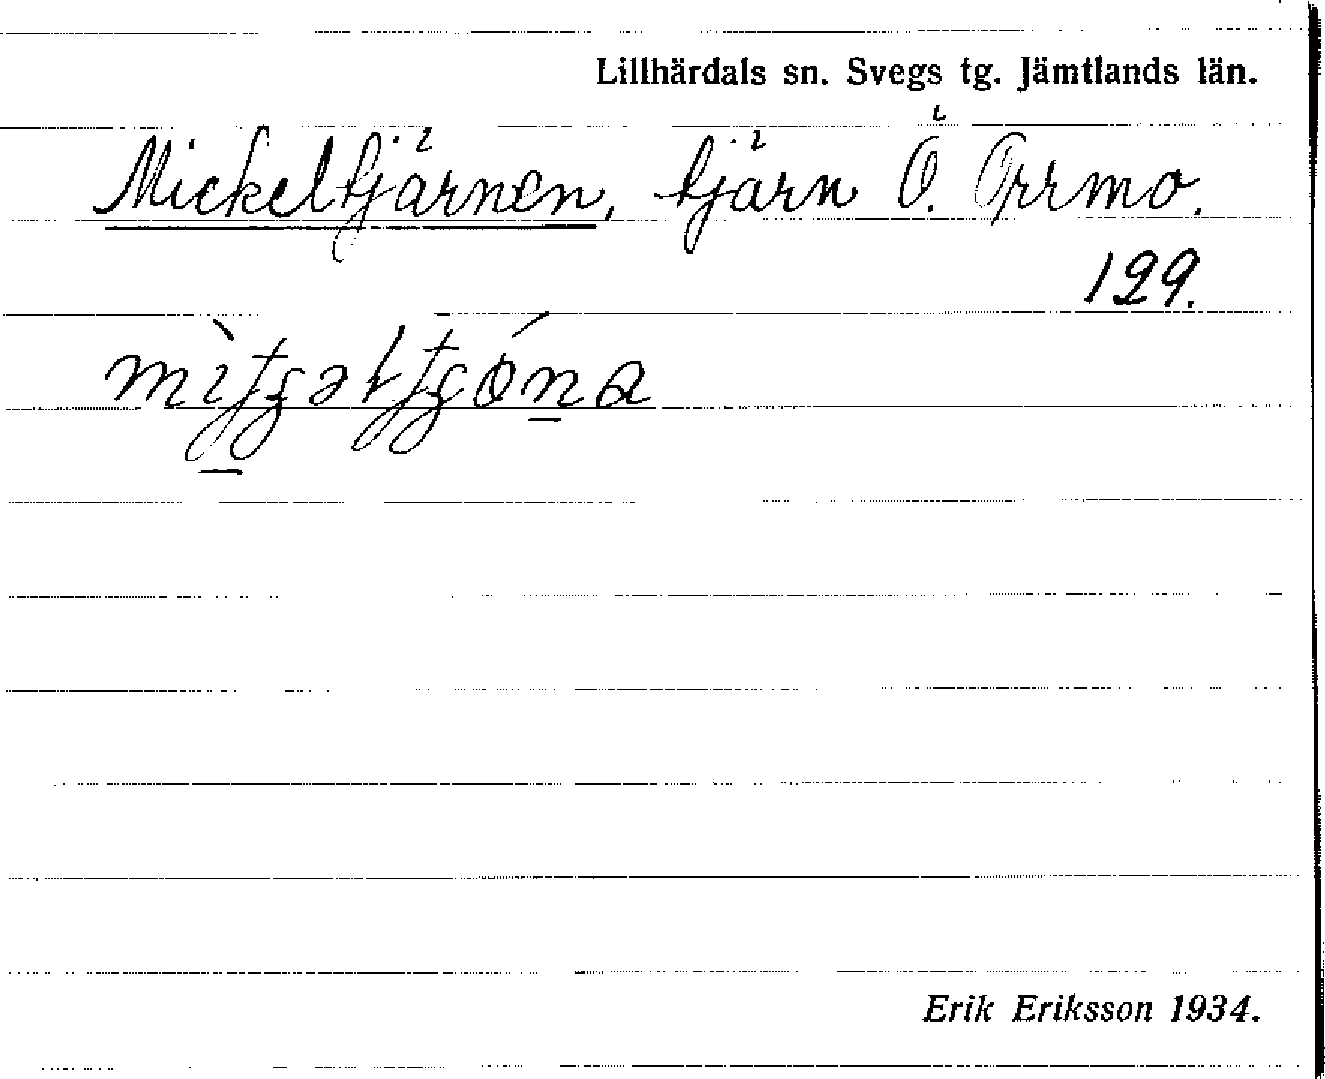 Lillhärdals sn. Svegs tg. Jämtlands län.
Mickeltjärnen, tjärn Ö. Orrmo.
129.
Erik Eriksson 1934.